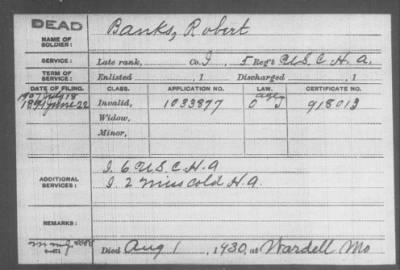 DEAD
NAME OF SOLDIER: Banks, Robert
SERVICE: Late rank, Co. I, 5 Reg't U.S.C.H.A.
TERM OF SERVICE: Enlisted , 1 Discharged , 1
DATE OF FILING. CLASS. APPLICATION NO. LAW. CERTIFICATE NO.
1907 July 18
1891 June 22 Invalid, 1033877 918013
Widow,
Minor,
I. 6 U.S.C.H.A
ADDITIONAL SERVICES: I. 2 Miss Cold H.A.
REMARKS:
Died Aug 1, 1930, at Wardell Mo